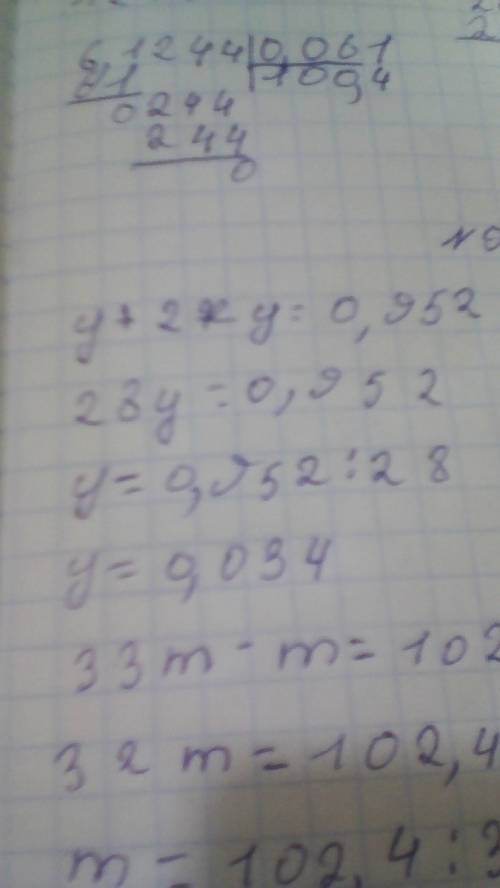 61244|0,061
61 100,4
0244
244
0
y + 2 y = 0,952
28y = 0,952
y = 0,952 : 28
y = 0,034
33m - m = 102
32m = 102,4
m = 102,4 : 3